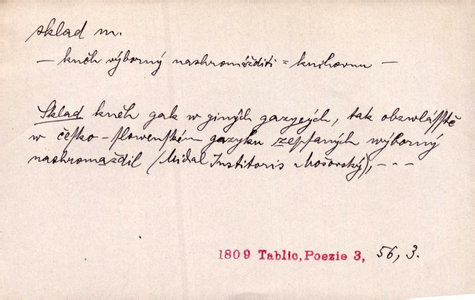 sklad m.
— kněh výborný nashromážditi = knihovnu —
Sklad kněh gak w giných gazycých, tak obzwlásstě
w česko-slowenském gazyku zepsaných wýborný
nashromáždil (Michal Institoris Mošovský), - - -
1809 Tablic, Poezie 3, 56, 3.